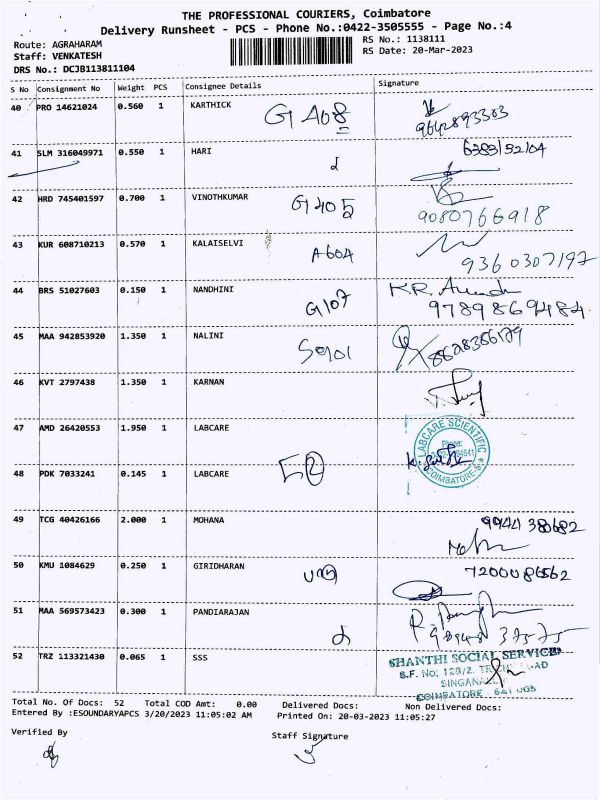 THE PROFESSIONAL COURIERS, Coimbatore
Delivery Runsheet - PCS - Phone No.:0422-3505555 - Page No.:4
Route: AGRAHARAM
RS No.: 1138111
Staff: VENKATESH
RS Date: 20-Mar-2023
DRS No.: DCJB113811104
S No Consignment No Weight PCS Consignee Details Signature
40 PRO 14621024 0.560 1 KARTHICK G 408
9642893303
41 SLM 316049971 0.550 1 HARI
42 HRD 745401597 0.700 1 VINOTHKUMAR G 405
9080766918
43 KUR 608710213 0.570 1 KALAISELVI A 604
9360307197
44 BRS 51027603 0.150 1 NANDHINI G107 K.R.
9789869484
45 MAA 942853920 1.350 1 NALINI
46 KVT 2797438 1.350 1 KARNAN
47 AMD 26420553 1.950 1 LABCARE
LABCARE SCIENTIFIC
Phone:
COIMBATORE
48 PDK 7033241 0.145 1 LABCARE
49 TCG 40426166 2.000 1 MOHANA 9944 380682
50 KMU 1084629 0.250 1 GIRIDHARAN
51 MAA 569573423 0.300 1 PANDIARAJAN
52 TRZ 113321430 0.065 1 SSS
SHANTHI SOCIAL SERVICES
S.F. No:
COIMBATORE
Total No. Of Docs: 52 Total COD Amt: 0.00 Delivered Docs: Non Delivered Docs:
Entered By :ESOUNDARYAPCS 3/20/2023 11:05:02 AM Printed On: 20-03-2023 11:05:27
Verified By
Staff Signature